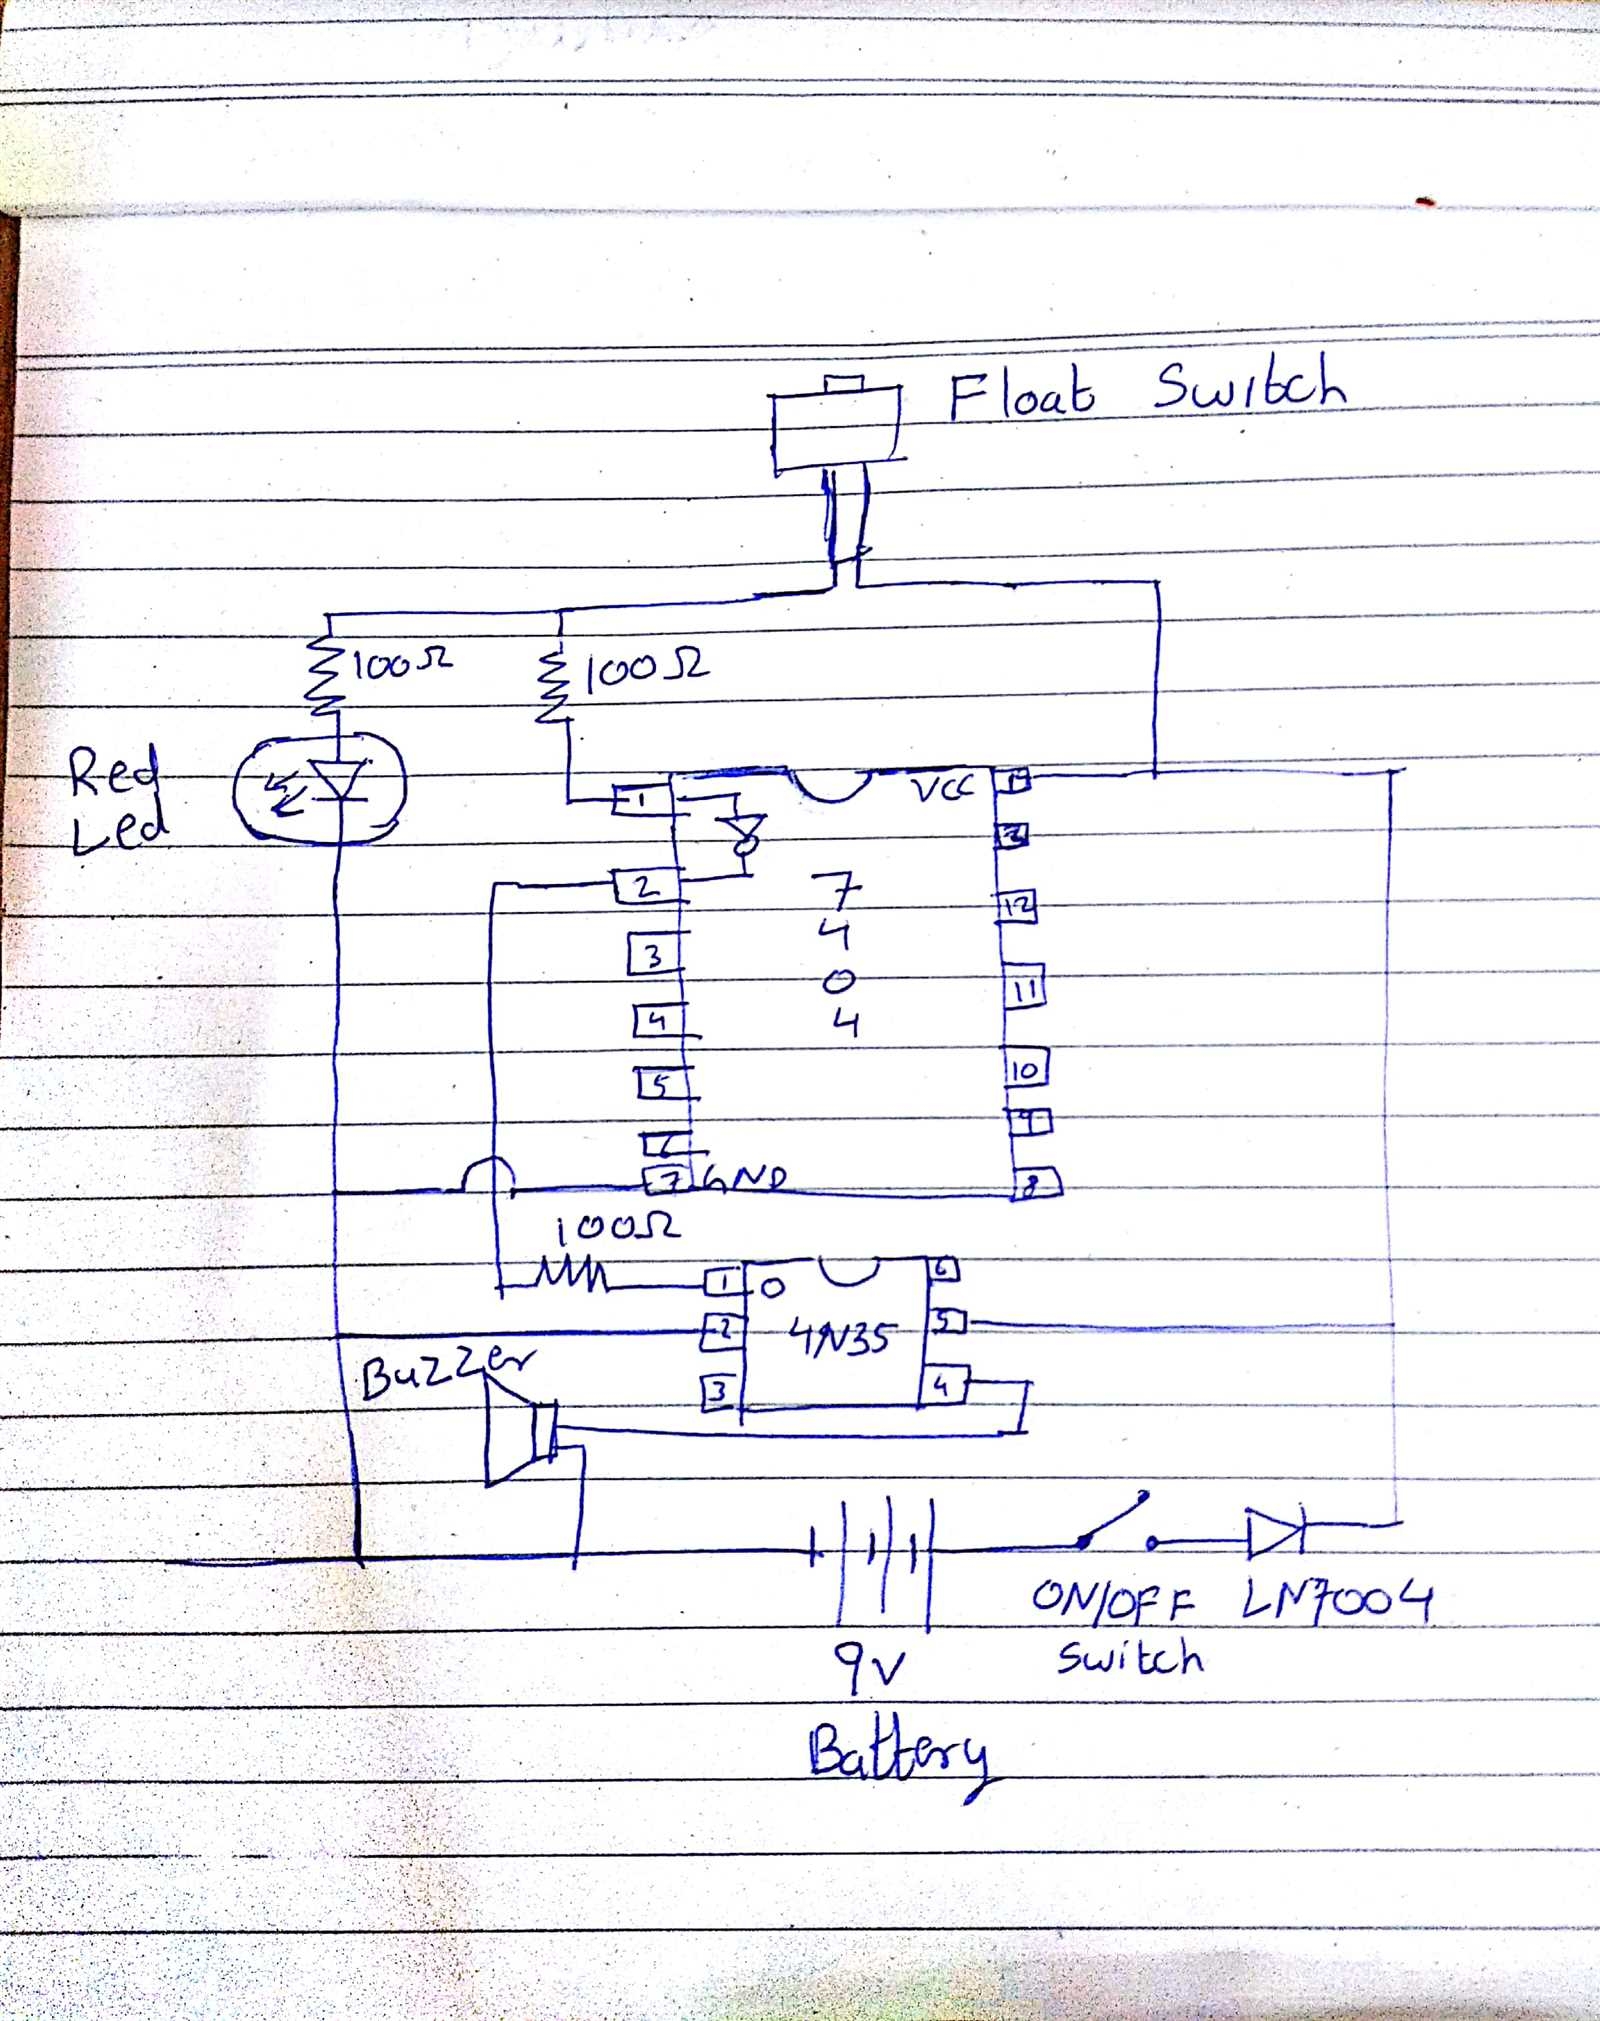 Float Switch
100Ω 100Ω
Red
Led
1 VCC
2
3
4
5
6
7 GND
7
4
0
4
12
11
10
9
8
100Ω
1 6
2 4N35 5
3 4
Buzzer
ON/OFF LN7004
Switch
9V
Battery